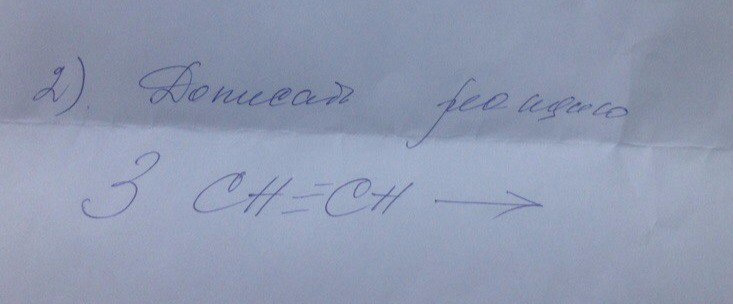 2). Дописать реакцию
3 CH≡CH →